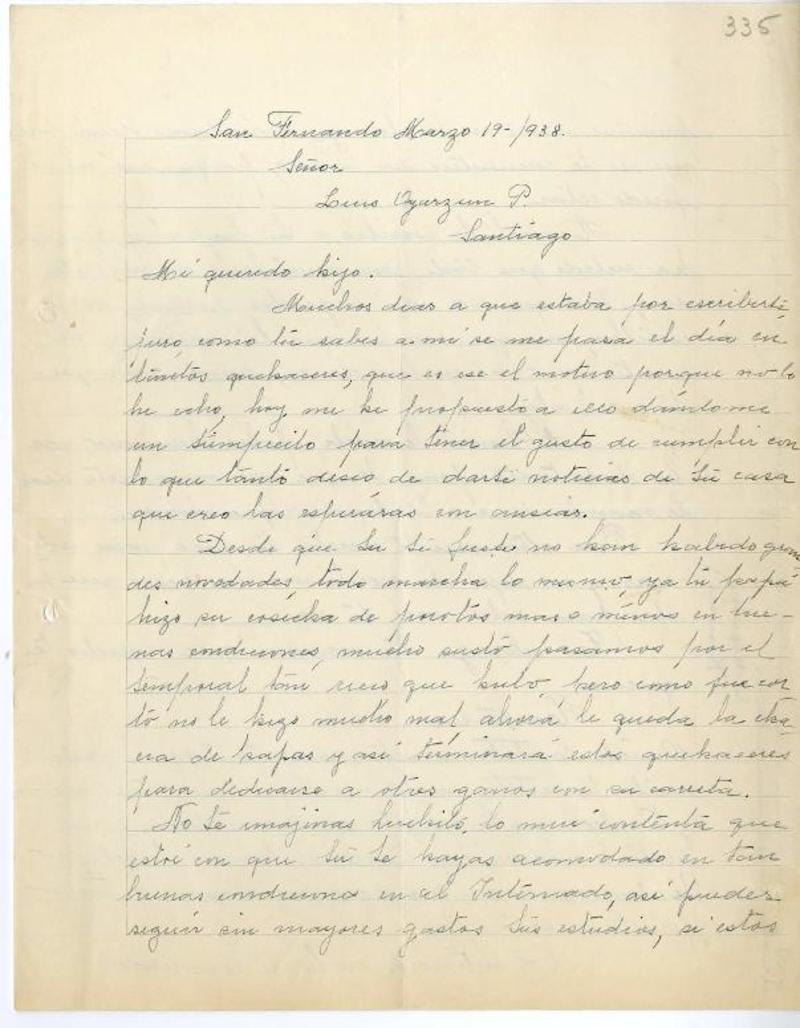 335
San Fernando Marzo 19-/938.
Señor
Luis Oyarzun P.
Santiago
Mi querido hijo.
Muchos dias a que estaba por escribirte,
pero, como tú sabes a mi se me pasa el día en
tantos quehaceres, que es ese el motivo porque no lo
he echo, hoy me he propuesto a ello dándome
un tiempecito para tener el gusto de cumplir con
lo que tánto deseo de darte noticias de tú casa
que creo las esperáras con ansias.
Desde que tu te fuste no han habido gran
des novedades, todo marcha lo mismo, ya tú papá
hizo su cosecha de porotos mas o ménos en bue-
nas condiciones, mucho susto pasamos por el
temporal tan recio que hubo, pero como fue cor
to no le hizo mucho mal ahora le queda la cha
cra de papas y asi terminará estos quehaceres
para dedicarse a otros ganos con su carreta.
No te imajinas Luchito, lo mui contenta que
estoi con que tú te hayas acomodado en tan
buenas condiciones en el Internado, asi puedes
seguir sin mayores gastos tús estudios, si estos